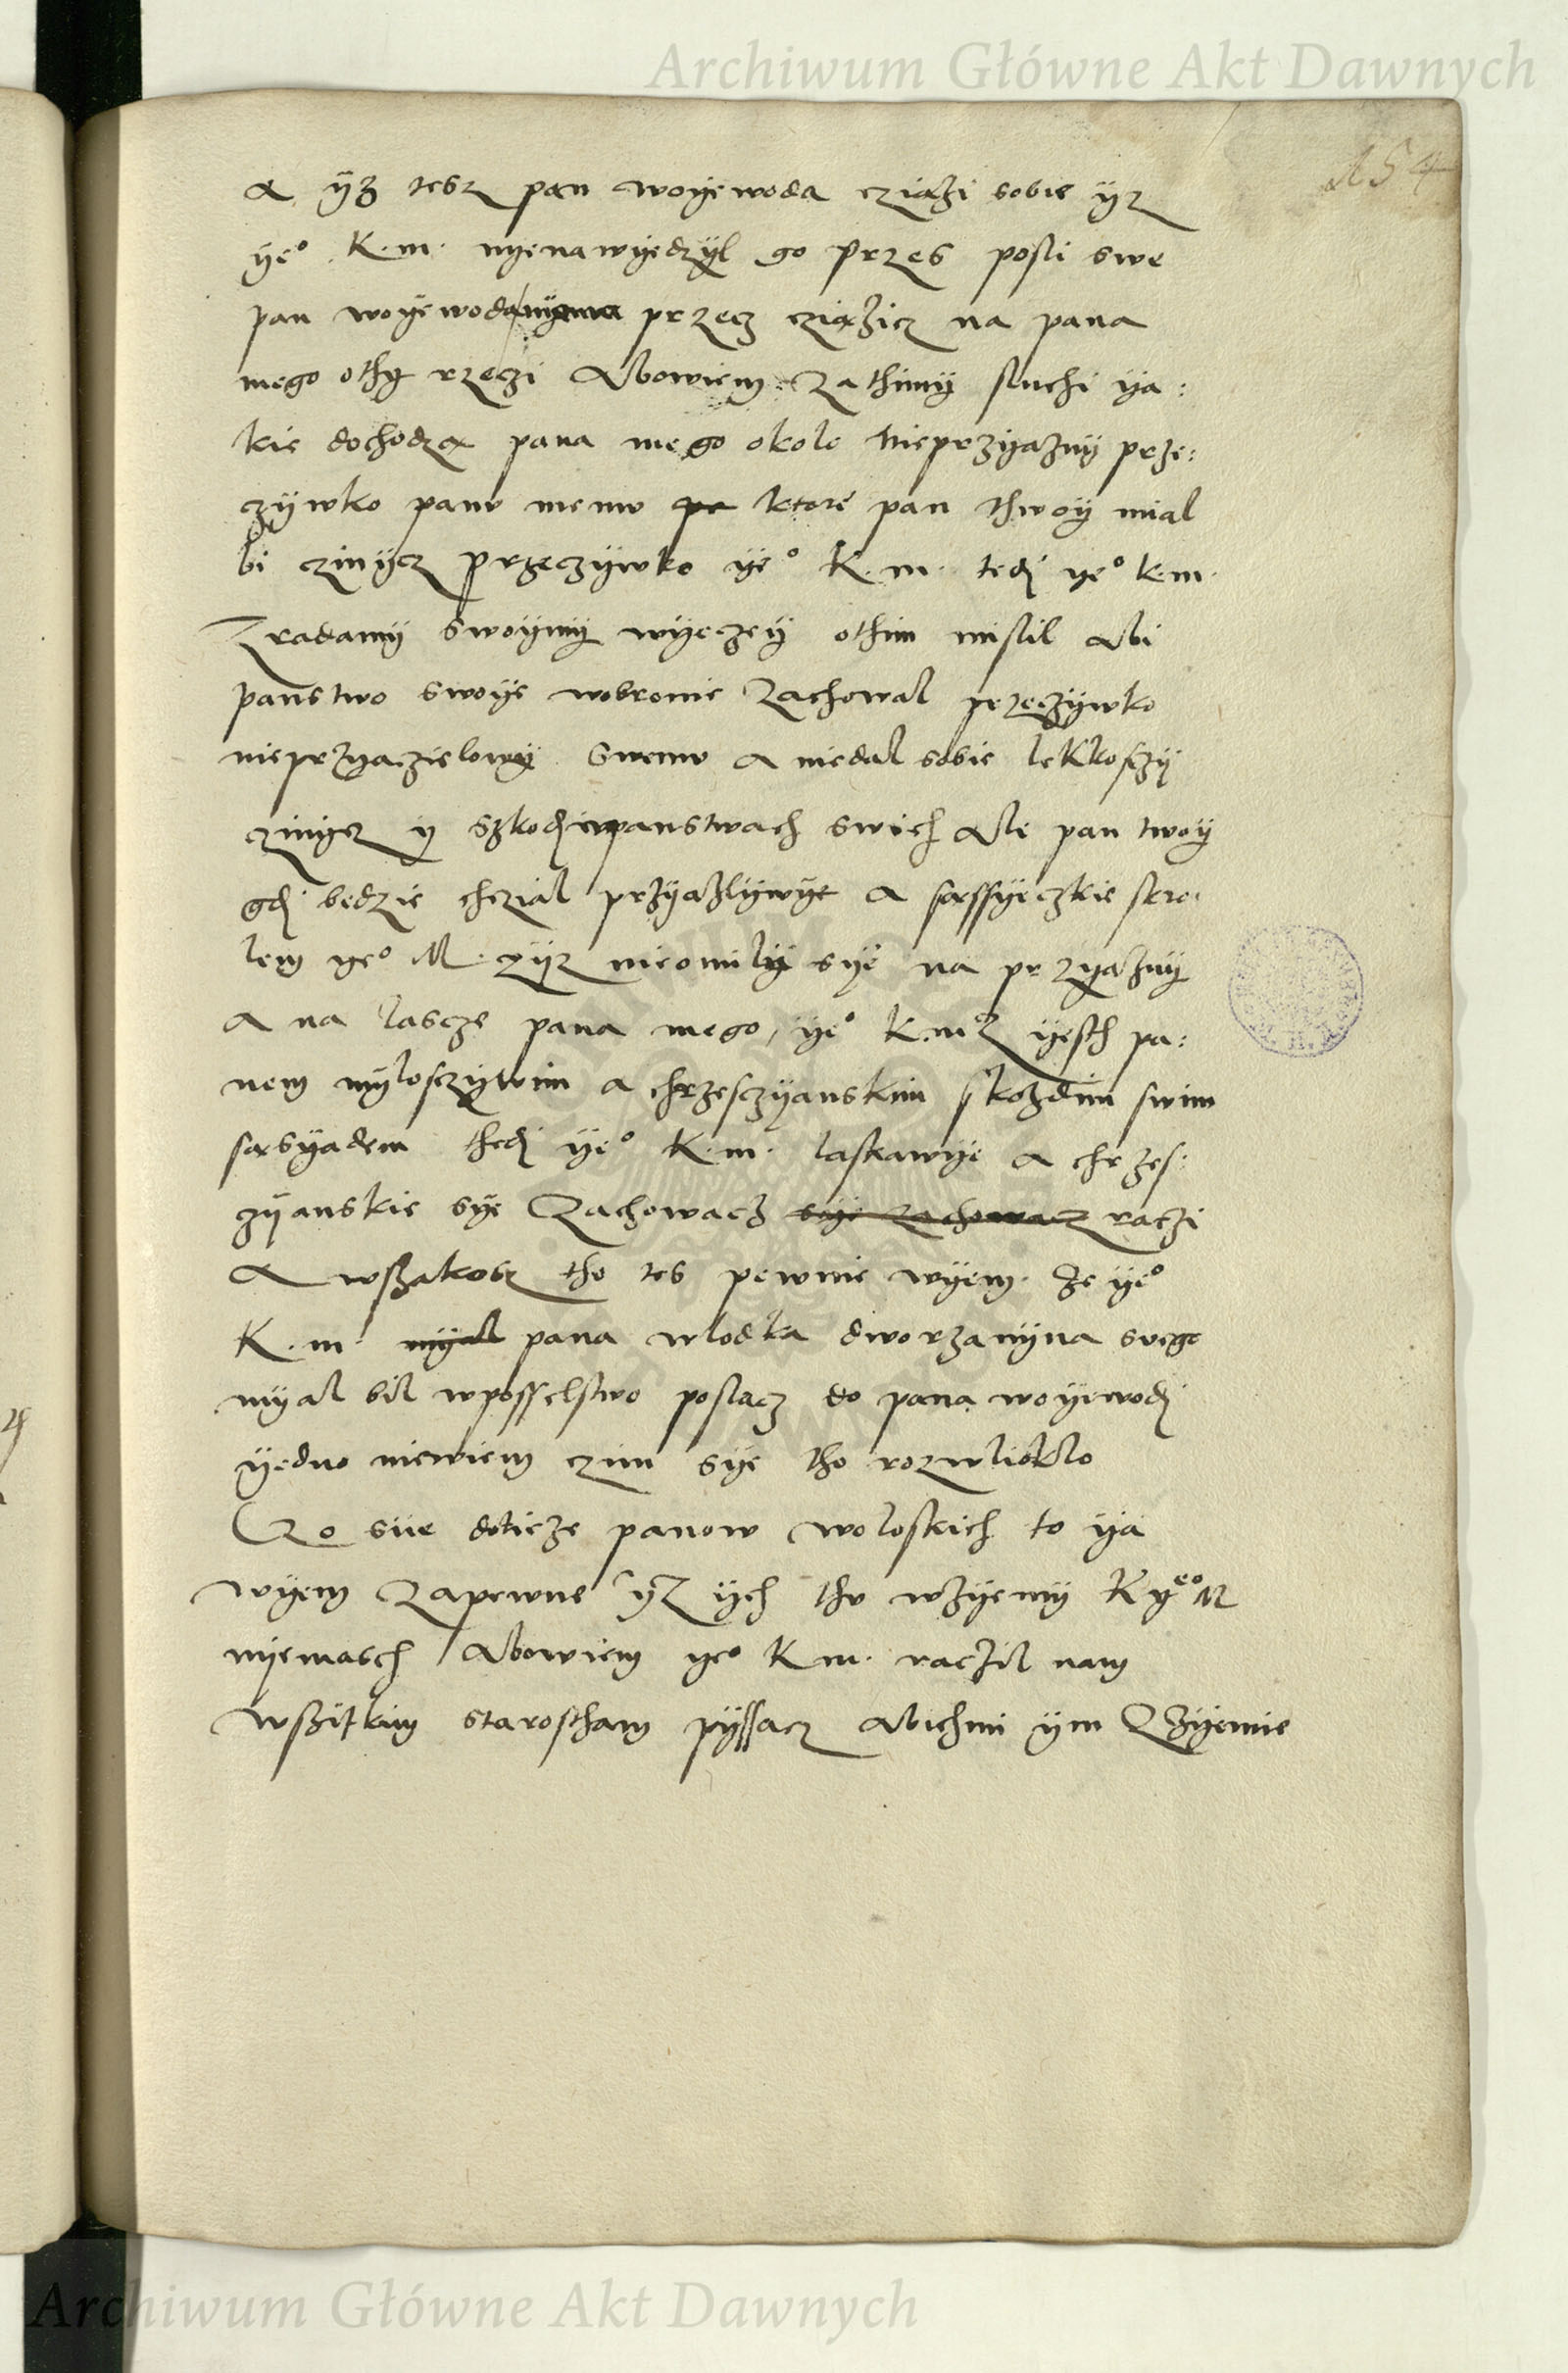 Archiwum Główne Akt Dawnych
154
A yz tesz pan woyewoda cziązi sobie yz
ye° K. m. nyenawyedzyl go przes posli swe
pan woyewoda nyema przecz cziązicz na pana
mego othy rzeczi Abowiem zathimy sluchi ya:
kie dochodzą pana mego okolo nieprzyazny prze:
czywko panu memu ktore pan thwoy mial
bi czinycz przeczywko ye° K. m. tedi ye° k. m.
Zradamy swoymy wyeczey othim mislil Abi
panstwo swoye wobronie zachowal przeczywko
nieprzyaczielowy swemu a niedal sobie lekkosczy
czinycz y szkodi wpanstwach swich Ale pan twoy
gdi bedzie chczial przyazlywye a sąssyeczkie skro:
lem ye° M. zyz nieomily sye na przyazny
A na lascze pana mego, ye° K. m. yesth pa:
nem mylosczywim a chrzesczyanskim skozdim swim
sąsyadem thedi ye° K. m. laskawye a chrzes:
zyanskie sye zachowacz sye zachowacz raczi
A wszakosz tho tes pewnie wyem. ze ye°
K. m. myal pana wlodka dworzanyna svego
myal bil wposselstwo poslacz do pana woyewodi
yedno niewiem czim sye tho rozwlioklo
Czo sue doticze panow woloskich to ya
wyem zapewne yz ych thu wzyemy K ye° M
nyemasch Abowiem ye° K m. raczil nam
wszitkim starostham pyssacz Abichmi ym Qzyemie
Archiwum Główne Akt Dawnych